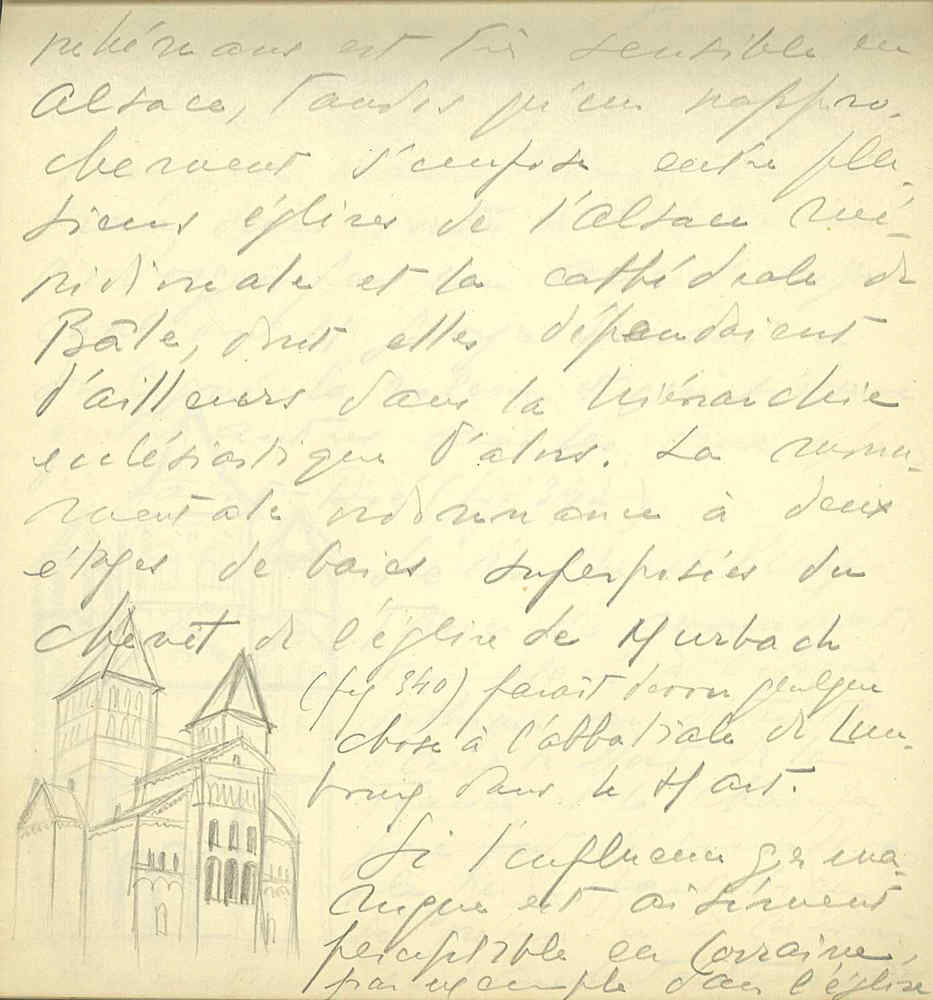 rhénans est très sensible en
Alsace, tandis qu'un rappro-
chement s'impose entre plu-
sieurs églises de l'Alsace mé-
ridionale et la cathédrale de
Bâle, dont elles dépendaient
d'ailleurs dans la hiérarchie
ecclésiastique d'alors. La monu-
mentale ordonnance à deux
étages de baies superposées du
chevet de l'église de Murbach
(fig 340) paraît devoir quelque
chose à l'abbatiale de Lim-
bourg dans le Hart.
Si l'influence germa-
nique est aisément
perceptible en Lorraine,
par exemple dans l'église